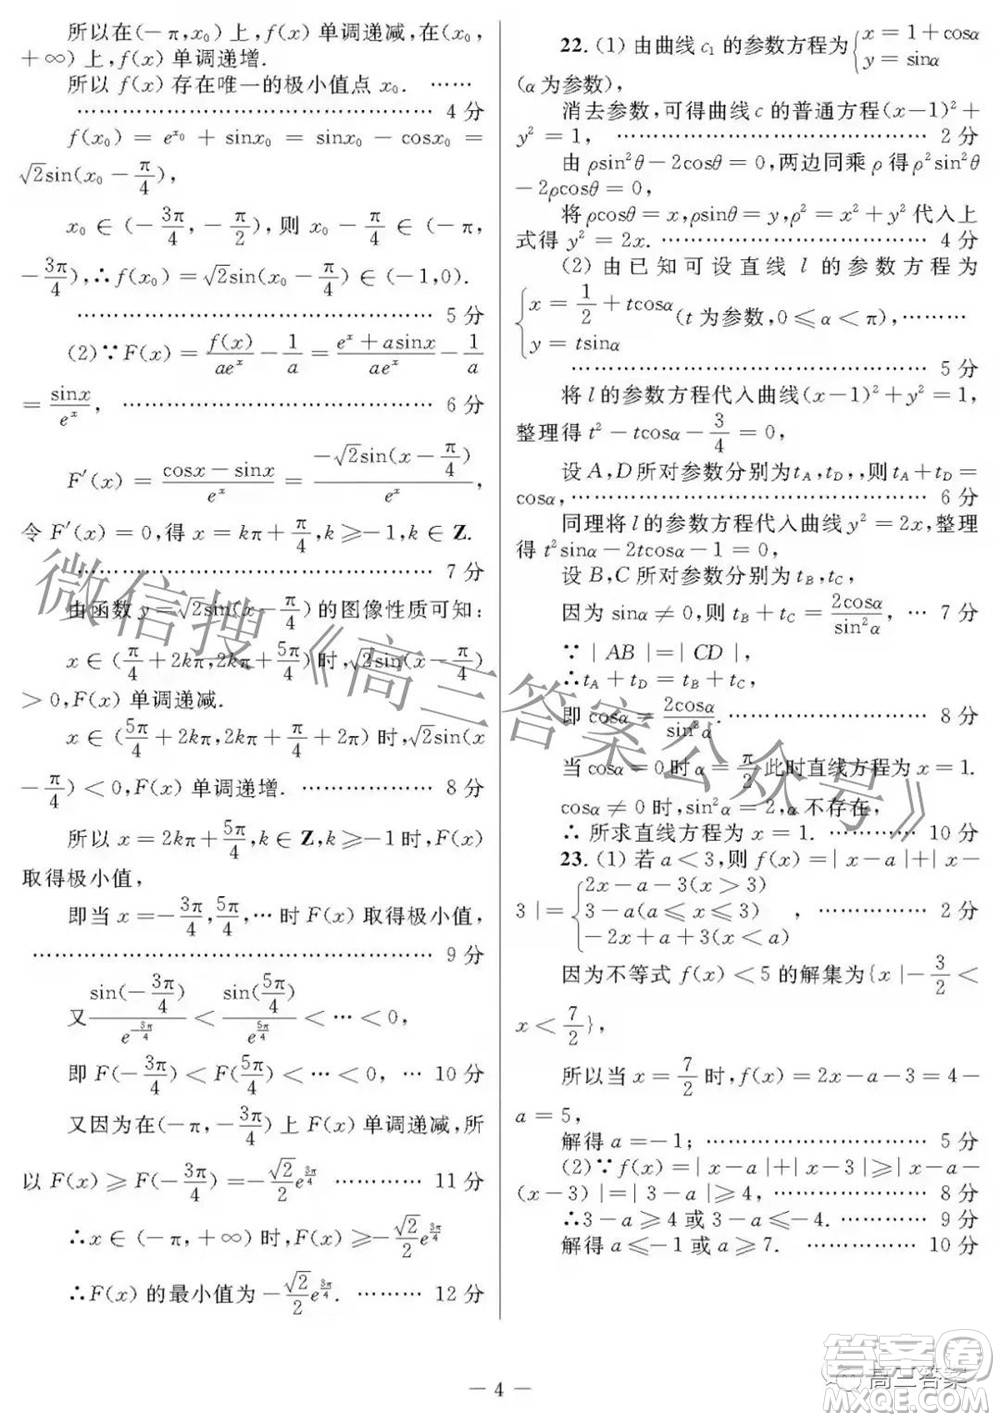 所以在(－π,x₀)上,f(x)单调递减,在(x₀,
＋∞)上,f(x)单调递增.
所以f(x)存在唯一的极小值点x₀. ……
………………………………………… 4分
f(x₀)＝e^{x₀}＋sinx₀＝sinx₀－cosx₀＝
√2sin(x₀－π/4),
x₀∈(－3π/4,－π/2),则x₀－π/4∈(－π,
－3π/4),∴f(x₀)＝√2sin(x₀－π/4)∈(－1,0).
………………………………………… 5分
(2)∵F(x)＝f(x)/ae^x－1/a＝(e^x＋asinx)/ae^x－1/a
＝sinx/e^x, …………………………………… 6分
F′(x)＝(cosx－sinx)/e^x＝－√2sin(x－π/4)/e^x,
令F′(x)＝0,得x＝kπ＋π/4,k≥－1,k∈Z.
………………………………………… 7分
由函数y＝√2sin(x－π/4)的图像性质可知:
x∈(π/4＋2kπ,2kπ＋5π/4)时,√2sin(x－π/4)
＞0,F(x)单调递减.
x∈(5π/4＋2kπ,2kπ＋π/4＋2π)时,√2sin(x
－π/4)＜0,F(x)单调递增. ……………… 8分
所以x＝2kπ＋5π/4,k∈Z,k≥－1时,F(x)
取得极小值,
即当x＝－3π/4,5π/4,…时F(x)取得极小值,
……………………………………………… 9分
又sin(－3π/4)/e^{－3π/4}＜sin(5π/4)/e^{5π/4}＜…＜0,
即F(－3π/4)＜F(5π/4)＜…＜0, … 10分
又因为在(－π,－3π/4)上F(x)单调递减,所
以F(x)≥F(－3π/4)＝－√2/2e^{3π/4} ………… 11分
∴x∈(－π,＋∞)时,F(x)≥－√2/2e^{3π/4}
∴F(x)的最小值为－√2/2e^{3π/4}. ……… 12分
22.(1)由曲线c₁的参数方程为{x＝1＋cosα
y＝sinα
(α为参数),
消去参数,可得曲线c的普通方程(x－1)²＋
y²＝1, …………………………………… 2分
由ρsin²θ－2cosθ＝0,两边同乘ρ得ρ²sin²θ
－2ρcosθ＝0,
将ρcosθ＝x,ρsinθ＝y,ρ²＝x²＋y²代入上
式得y²＝2x. ……………………………… 4分
(2)由已知可设直线l的参数方程为
{x＝1/2＋tcosα
y＝tsinα
(t为参数,0≤α＜π), ………
………………………………………… 5分
将l的参数方程代入曲线(x－1)²＋y²＝1,
整理得t²－tcosα－3/4＝0,
设A,D所对参数分别为t_A,t_D,,则t_A＋t_D＝
cosα, ……………………………………… 6分
同理将l的参数方程代入曲线y²＝2x,整理
得t²sinα－2tcosα－1＝0,
设B,C所对参数分别为t_B,t_C,
因为sinα≠0,则t_B＋t_C＝2cosα/sin²α, … 7分
∵|AB|＝|CD|,
∴t_A＋t_D＝t_B＋t_C,
即cosα＝2cosα/sin²α. ……………………… 8分
当cosα＝0时α＝π/2,此时直线方程为x＝1.
cosα≠0时,sin²α＝2,α不存在,
∴所求直线方程为x＝1. ………… 10分
23.(1)若a＜3,则f(x)＝|x－a|＋|x－
3|＝{2x－a－3(x＞3)
3－a(a≤x≤3)
－2x＋a＋3(x＜a)
, …………… 2分
因为不等式f(x)＜5的解集为{x|－3/2＜
x＜7/2},
所以当x＝7/2时,f(x)＝2x－a－3＝4－
a＝5,
解得a＝－1; …………………………… 5分
(2)∵f(x)＝|x－a|＋|x－3|≥|x－a－
(x－3)|＝|3－a|≥4, ………………… 8分
∴3－a≥4或3－a≤－4. ………… 9分
解得a≤－1或a≥7. …………… 10分
微信搜《高三答案公众号》
答案圈
高三答案
MXQE.COM
－4－